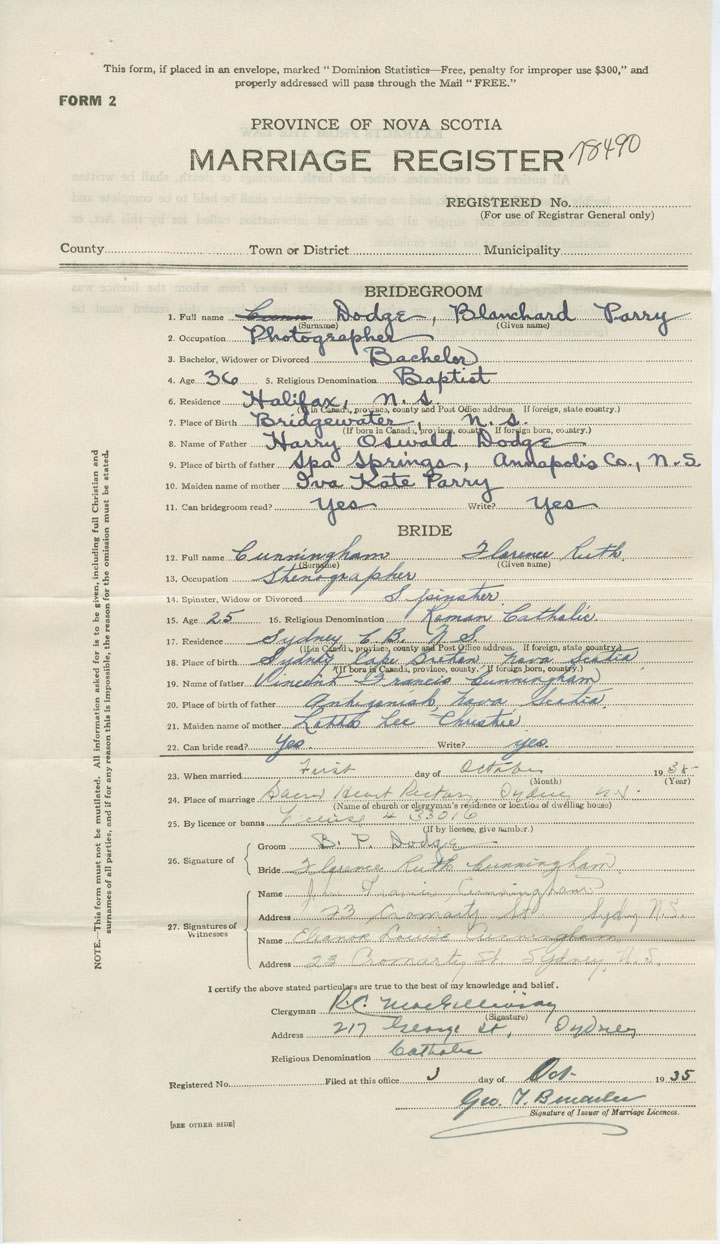 This form, if placed in an envelope, marked "Dominion Statistics—Free, penalty for improper use $300," and
properly addressed will pass through the Mail "FREE."
FORM 2
PROVINCE OF NOVA SCOTIA
MARRIAGE REGISTER 78490
REGISTERED No.
(For use of Registrar General only)
County Town or District Municipality
BRIDEGROOM
1. Full name Dodge, Blanchard Parry
(Surname) (Given name)
2. Occupation Photographer
3. Bachelor, Widower or Divorced Bachelor
4. Age 36 5. Religious Denomination Baptist
6. Residence Halifax, N.S.
(If in Canada, province, county and Post Office address. If foreign, state country.)
7. Place of Birth Bridgewater, N.S.
(If born in Canada, province, county. If foreign born, country.)
8. Name of Father Harry Oswald Dodge
9. Place of birth of father Spa Springs, Annapolis Co., N.S
10. Maiden name of mother Iva Kate Parry
11. Can bridegroom read? Yes Write? Yes
BRIDE
12. Full name Cunningham Florence Ruth
(Surname) (Given name)
13. Occupation Stenographer
14. Spinster, Widow or Divorced Spinster
15. Age 25 16. Religious Denomination Roman Catholic
17. Residence Sydney C.B. N.S
(If in Canada, province, county and Post Office address. If foreign, state country)
18. Place of birth Sydney Cape Breton Nova Scotia
(If born in Canada, province, county. If foreign born, country.)
19. Name of father Vincent Francis Cunningham
20. Place of birth of father Antigonish, Nova Scotia
21. Maiden name of mother Lee Christie
22. Can bride read? Yes. Write? yes.
23. When married First day of October 1935
(Month) (Year)
24. Place of marriage Sacred Heart Rectory Sydney N.S.
(Name of church or clergyman's residence or location of dwelling house)
25. By licence or banns License # 33016
(If by licence, give number.)
26. Signature of
Groom B. P. Dodge
Bride Florence Ruth Cunningham
27. Signatures of Witnesses
Name John Francis Cunningham
Address 23 Cromarty St Sydney N.S.
Name Eleanor Louise Cunningham
Address 23 Cromarty St Sydney, N.S.
I certify the above stated particulars are true to the best of my knowledge and belief.
Clergyman R.C. MacGillivray
(Signature)
Address 217 George St, Sydney
Religious Denomination Catholic
Registered No. Filed at this office 3 day of Oct. 1935
Geo. T.
Signature of Issuer of Marriage Licences.
[SEE OTHER SIDE]
NOTE.—This form must not be mutilated. All information asked for is to be given, including full Christian and
surnames of all parties, and if for any reason this is impossible, the reason for the omission must be stated.